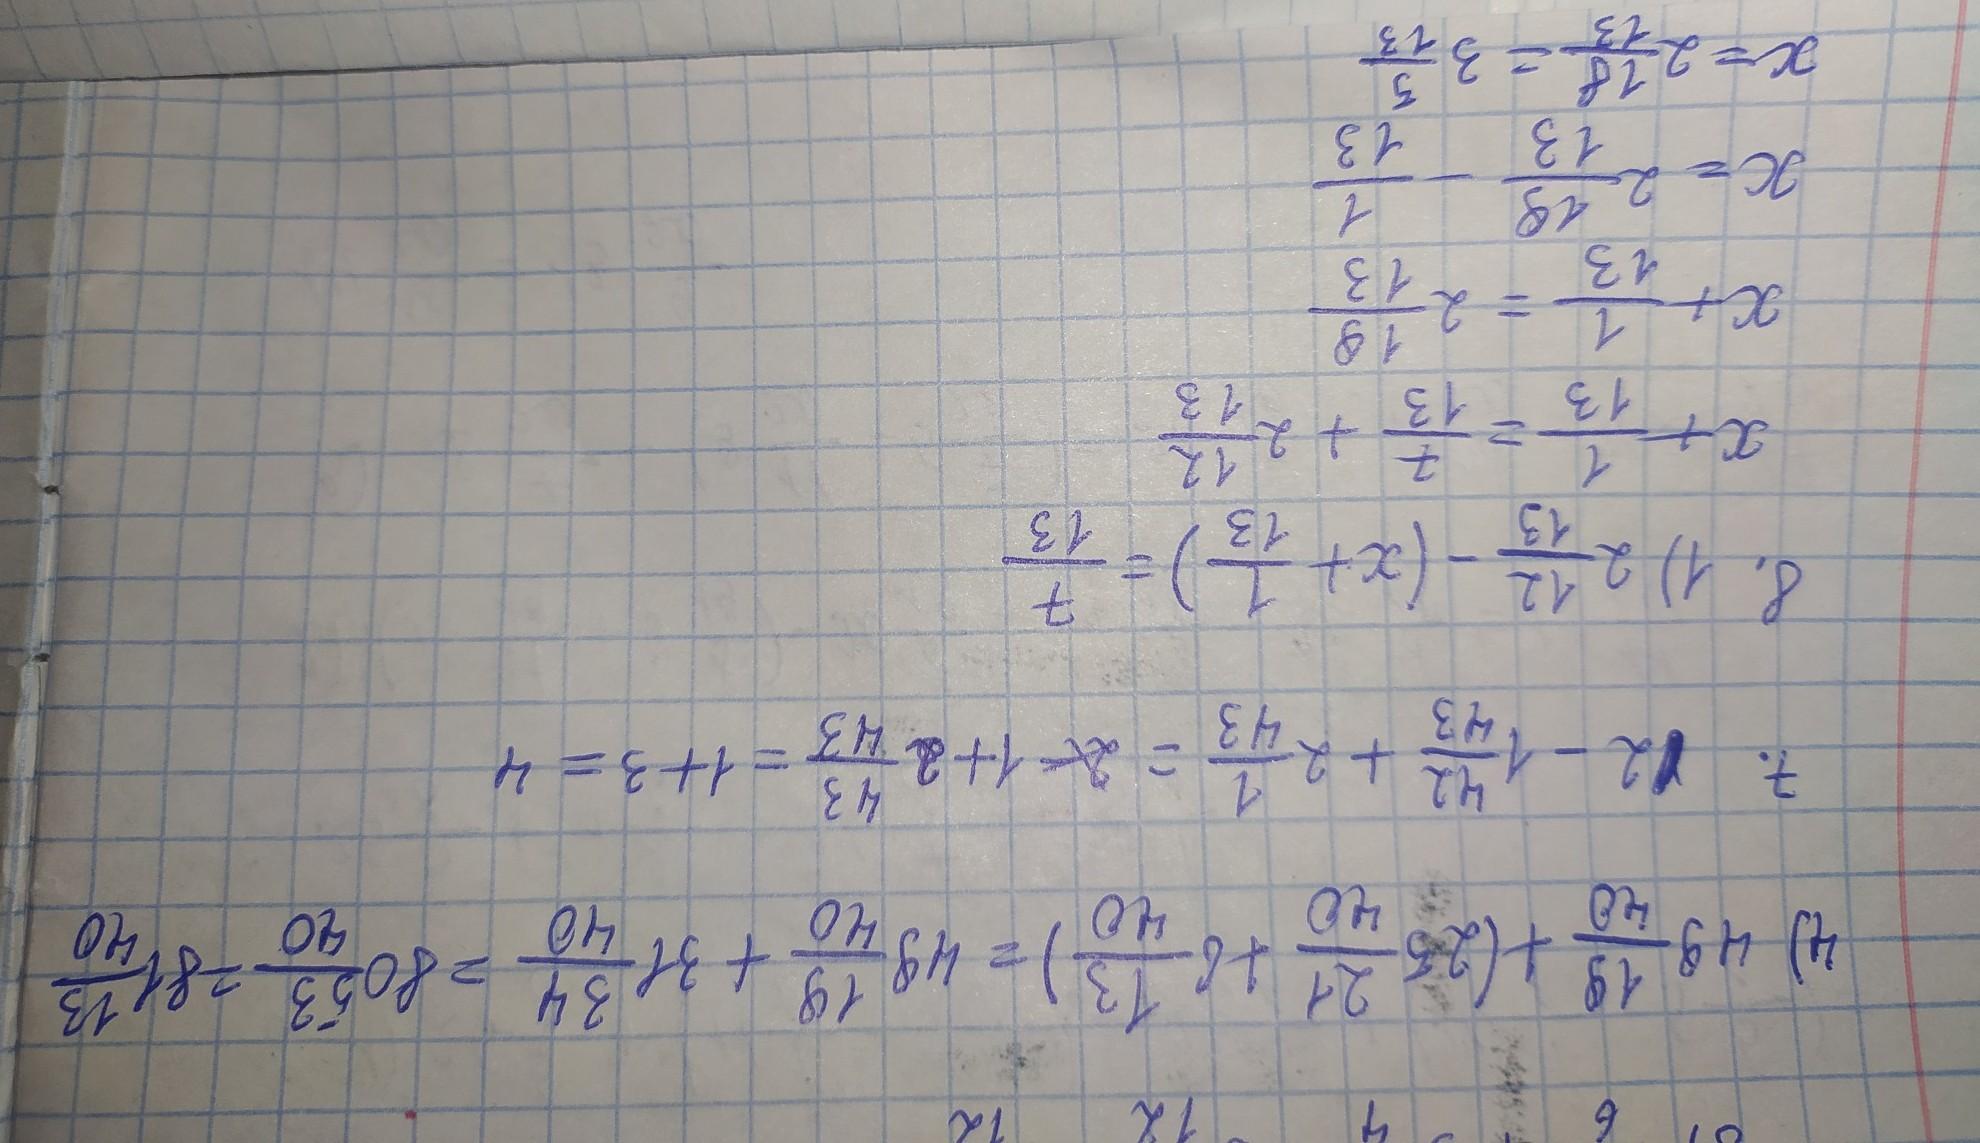 4) 49 19/40 + (25 21/40 + 6 13/40) = 49 19/40 + 31 34/40 = 80 53/40 = 81 13/40
7. 2 - 1 42/43 + 2 1/43 = 2 - 1 + 2 43/43 = 1 + 3 = 4
8. 1) 2 12/13 - (x + 1/13) = 7/13
x + 1/13 = 7/13 + 2 12/13
x + 1/13 = 2 19/13
x = 2 19/13 - 1/13
x = 2 18/13 = 3 5/13